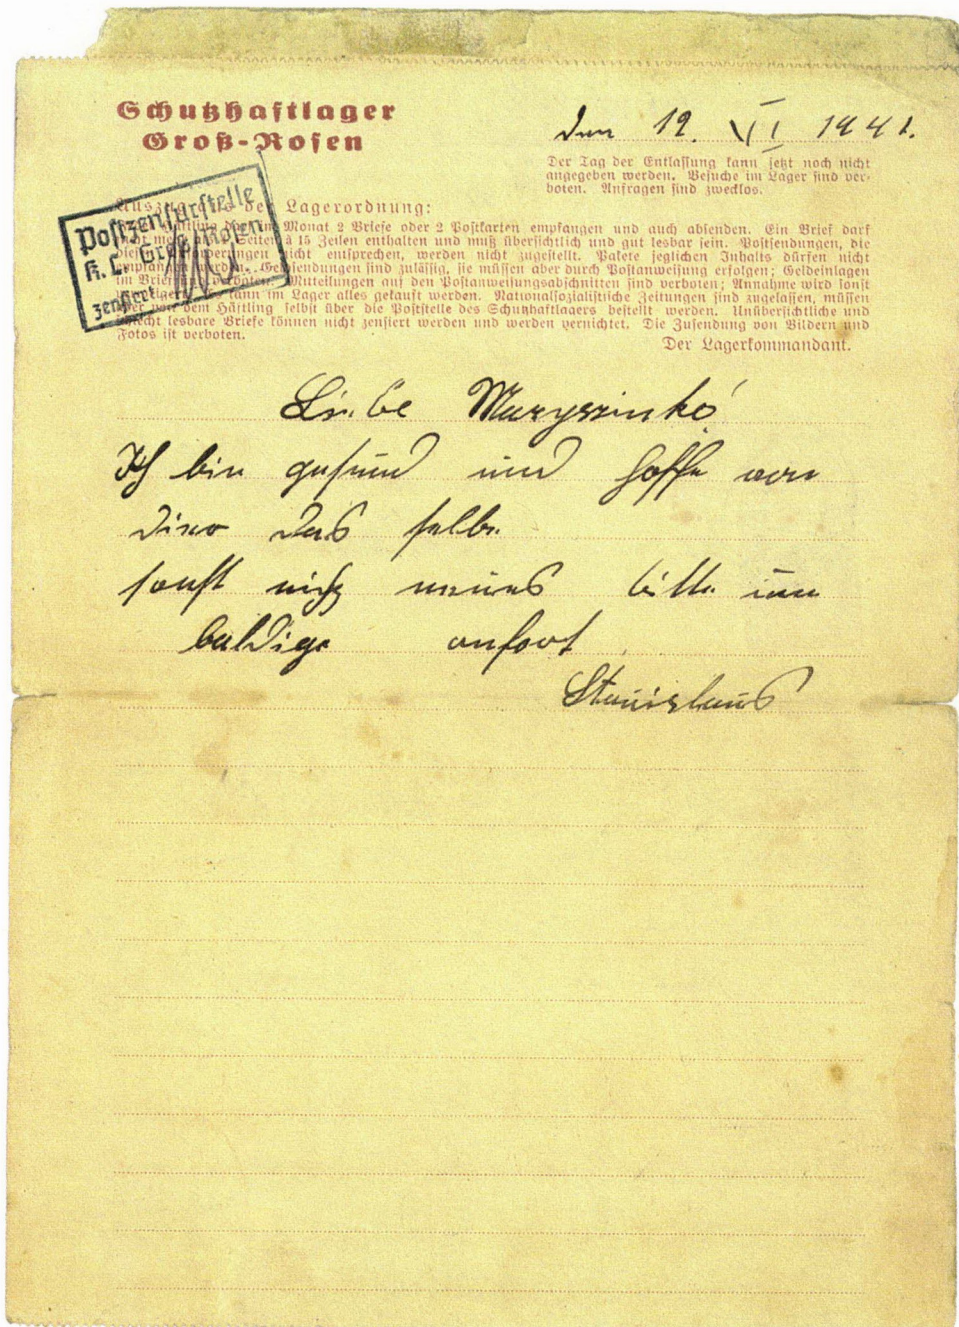 Schutzhaftlager
Groß-Rosen
den 19. VI 1941.
Der Tag der Entlassung kann jetzt noch nicht
angegeben werden. Besuche im Lager sind ver-
boten. Anfragen sind zwecklos.
Postzensurstelle
K. L. Groß-Rosen
zensiert
Auszug aus der Lagerordnung:
Monat 2 Briefe oder 2 Postkarten empfangen und auch absenden. Ein Brief darf
Seiten à 15 Zeilen enthalten und muß übersichtlich und gut lesbar sein. Postsendungen, die
nicht entsprechen, werden nicht zugestellt. Pakete jeglichen Inhalts dürfen nicht
Geldsendungen sind zulässig, sie müssen aber durch Postanweisung erfolgen; Geldeinlagen
im Brief sind verboten; Mitteilungen auf den Postanweisungsabschnitten sind verboten; Annahme wird sonst
kann im Lager alles gekauft werden. Nationalsozialistische Zeitungen sind zugelassen, müssen
aber von dem Häftling selbst über die Poststelle des Schutzhaftlagers bestellt werden. Unübersichtliche und
schlecht lesbare Briefe können nicht zensiert werden und werden vernichtet. Die Zusendung von Bildern und
Fotos ist verboten.
Der Lagerkommandant.
Liebe Maryszinko
Ich bin gesund und hoffe von
das selbe
sonst nichz neues bitte um
baldige anfort
Stanislaus